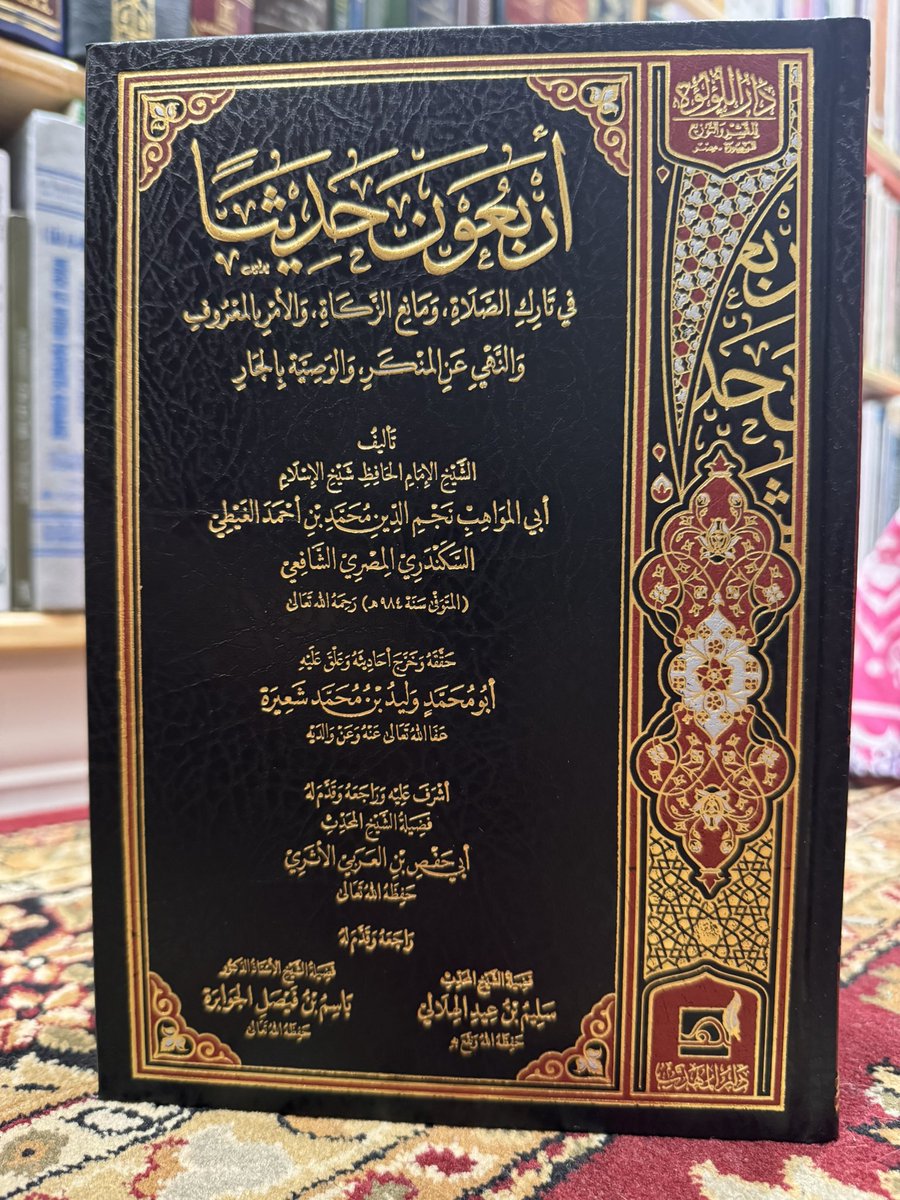 دار اللؤلؤة
للنشر والتوزيع
المنصورة - مصر
أَرْبَعُونَ حَدِيثًا
فِي تَارِكِ الصَّلَاةِ، وَمَانِعِ الزَّكَاةِ، وَالأَمْرِ بِالمَعْرُوفِ
وَالنَّهْيِ عَنِ المُنْكَرِ، وَالوَصِيَّةِ بِالجَارِ
تَأْلِيفُ
الشَّيْخِ الإِمَامِ الحَافِظِ شَيْخِ الإِسْلَامِ
أَبِي المَوَاهِبِ نَجْمِ الدِّينِ مُحَمَّدِ بْنِ أَحْمَدَ الغَيْطِيِّ
السَّكَنْدَرِيِّ المِصْرِيِّ الشَّافِعِيِّ
(المتَوَفَّى سَنَة ٩٨٤ هـ) رَحِمَهُ اللهُ تَعَالَى
حَقَّقَهُ وَخَرَّجَ أَحَادِيثَهُ وَعَلَّقَ عَلَيْهِ
أَبُو مُحَمَّدٍ وَلِيدُ بْنُ مُحَمَّد شعيرَة
عَفَا اللهُ تَعَالَى عَنْهُ وَعَنْ وَالدَيْهِ
أَشْرَفَ عَلَيْهِ وَرَاجَعَهُ وَقَدَّمَ لَهُ
فَضِيلَةُ الشَّيْخِ المُحَدِّثِ
أَبِي حَفْصِ بْنِ العَرَبِيِّ الأَثَرِيِّ
حَفِظَهُ اللهُ تَعَالَى
رَاجَعَهُ وَقَدَّمَ لَهُ
فَضِيلَةُ الشَّيْخِ المُحَدِّثِ
سَلِيمُ بْنُ عِيدٍ الهِلَالِي
حَفِظَهُ اللهُ وَنَفَعَ بِهِ
فَضِيلَةُ الشَّيْخِ الأُسْتَاذُ الدُّكْتُور
بَاسِم بْنُ فَيْصَلِ الجَوَابِرَة
حَفِظَهُ اللهُ تَعَالَى